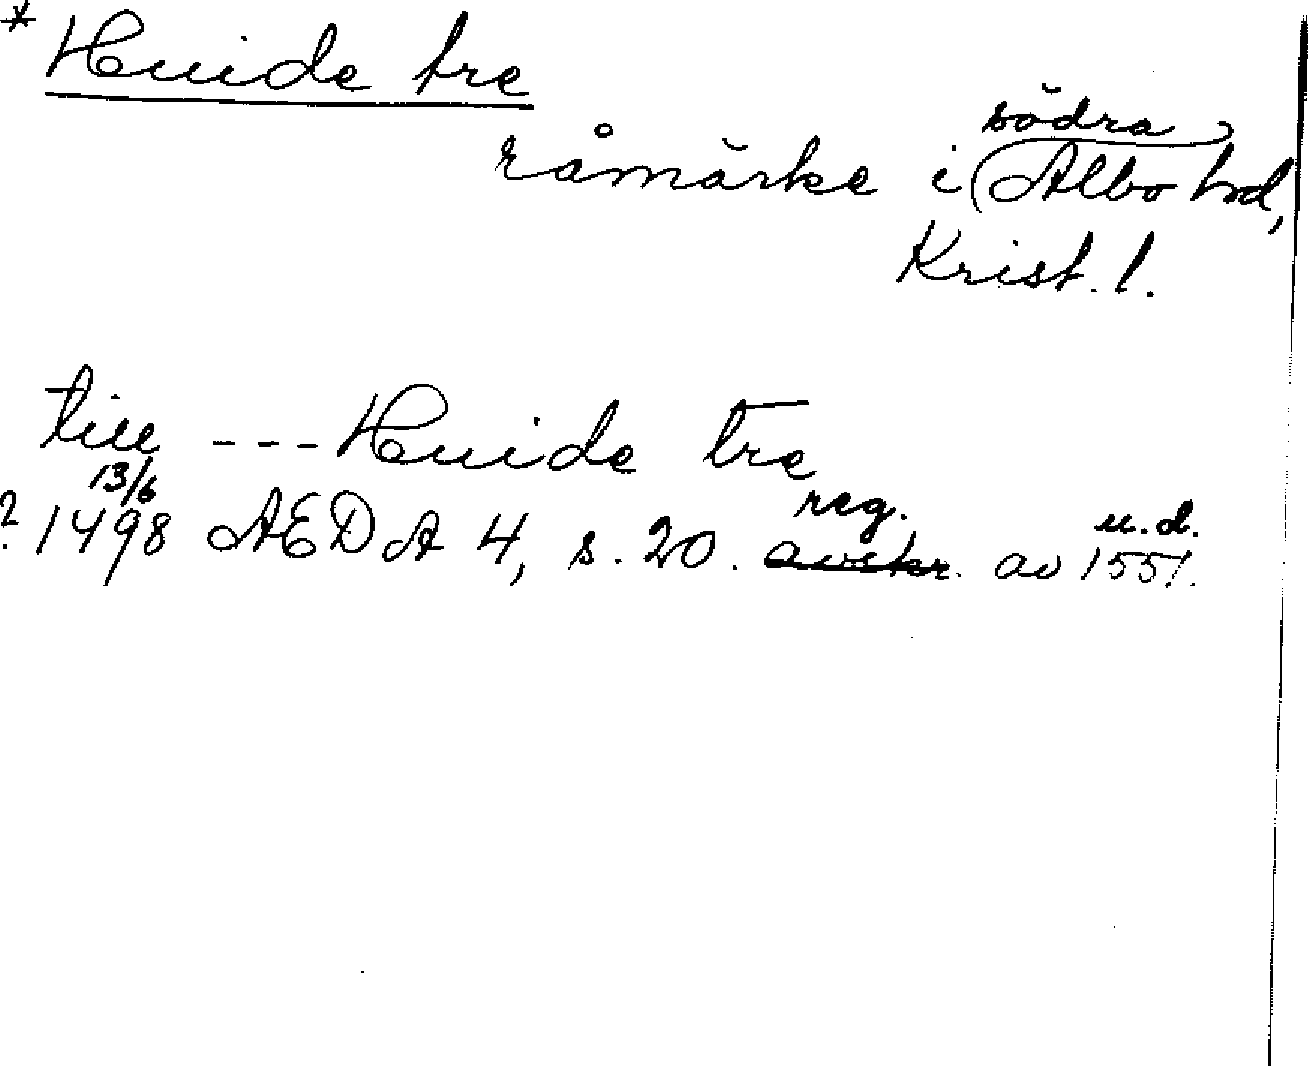 * Huide tre
södra
råmärke i Albo hd,
Krist. l.
till --- Huide tre
13/6 reg. u.d.
? 1498 AEDA 4, s. 20. avskr. av 1551.